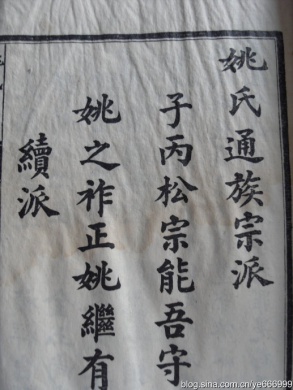 姚氏通族宗派
子丙松宗能吾守
姚之祚正姚繼有
續派
blog.sina.com.cn/ye666999